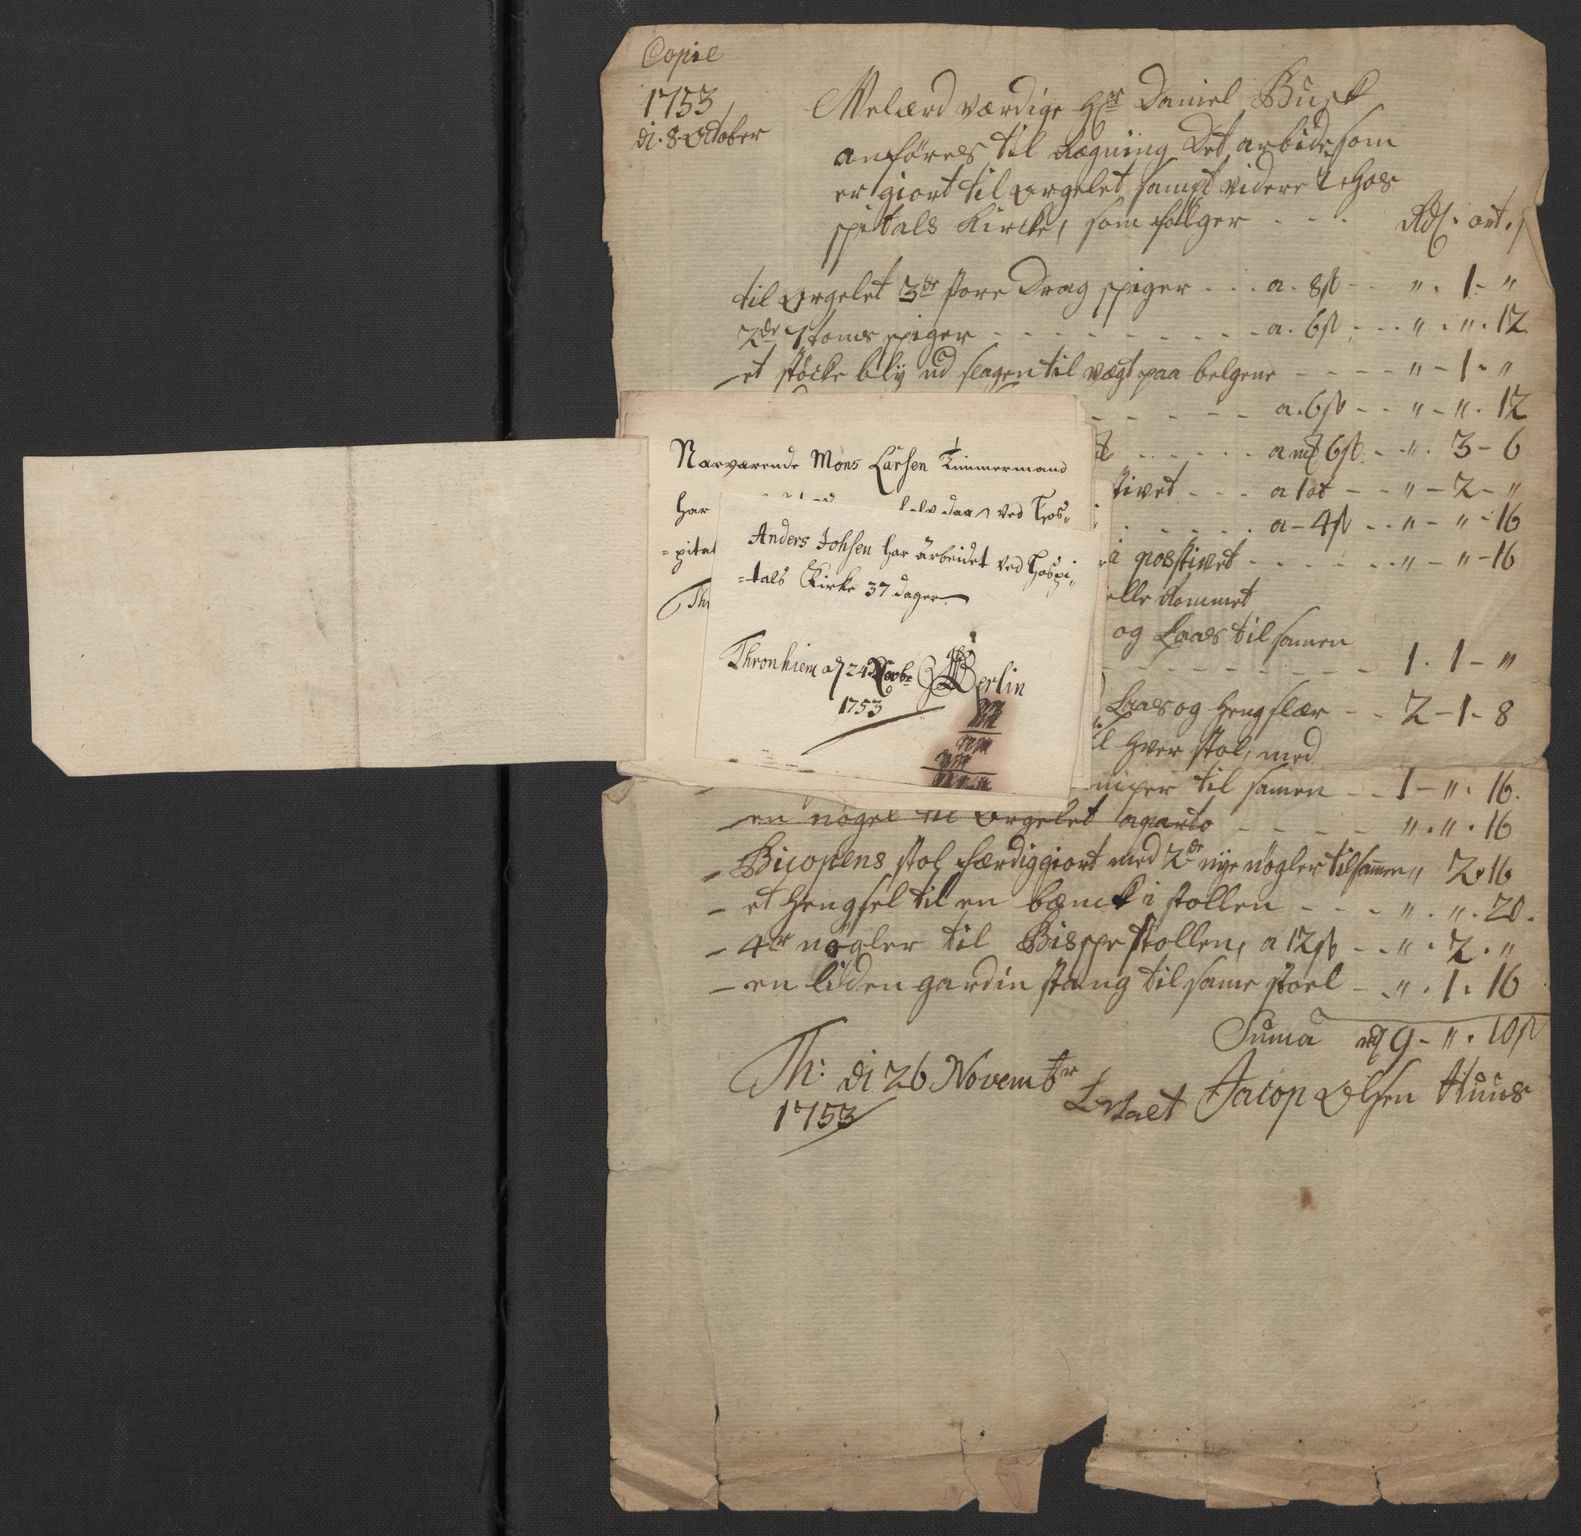 Copie
1753
di. 8 October
Velærd værdige Hr Daniel Busk
anføres til Rægning Det arbide som
er giort til orgelet sampt videre i Hos
spitals Kircke, som følger - - - Rdl. ort. s
til orgelet 3de store Drag spiger - - - a. 8s - - " . 1 - "
2de Stoms spiger - - - - - a. 6s - - " . " . 12
- et støcke bly ud slagen til vægt paa belgene - - - - " - 1 - "
- - - - a. 6s - - " - " . 12
- - - - a 6s - - " . 3 - 6
tivet - - - a 1 ort - - " - 2 - "
- - - - a - 4s - - " - " - 16
i posstivet - - - - - " - " - 16
elle Rommet
og Laas til samen
- - - - - 1 . 1 - "
Laas og Hengslær - - 2 - 1 - 8
l hver stol, med
til samen - - 1 - " . 16.
- en nøgel til Orgelet aparto - - - - " . " . 16
- Bispens stol færdiggiort med 2de nye nøgler tilsamen " 2 . 16
- et Hengsel til en bænck i stollen - - - " . " . 20.
- 4re nøgler til Bispe stollen, a 12s - - " . 2 . "
- en liden gardin stang til same stoel - - " . 1 . 16
Suma rd 9 - " . 10s
Th: di 26 Novembr
1753
Jacop Olsen Huus
Narværende Mons Larsen Timmermand
har dag ved Hos-
=pital
Th
Anders Johsen har arbeidet ved Hospi-
=tals Kirke 37 dager.
Thronhiem d 24 Novbr Berlin
1753